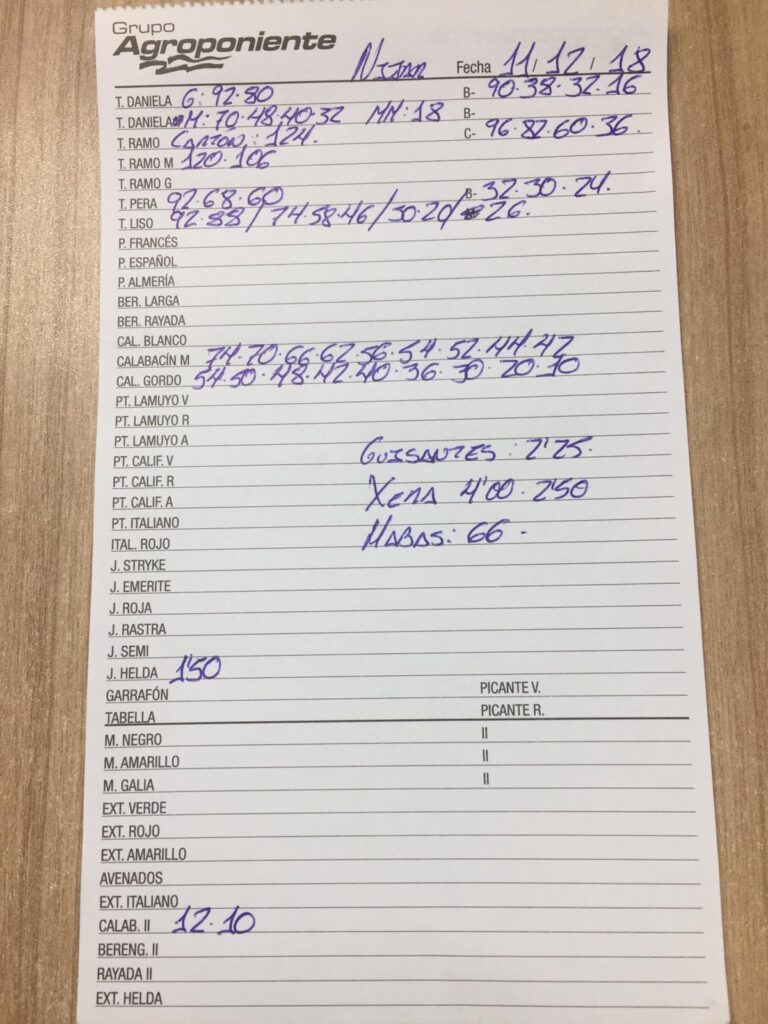 Grupo
Agroponiente
Nijar Fecha 11/12/18
T. DANIELA G: 92·80 B- 90·38·32·16
T. DANIELA M: 70·48·40·32 MM: 18 B-
T. RAMO CARTON: 124. C- 96·82·60·36·
T. RAMO M 120·106
T. RAMO G
T. PERA 92·68·60 B- 32·30·24.
T. LISO 92·88/74·58·46/30·20/26.
P. FRANCÉS
P. ESPAÑOL
P. ALMERÍA
BER. LARGA
BER. RAYADA
CAL. BLANCO
CALABACÍN M 74·70·66·62·56·54·52·44·42
CAL. GORDO 54·50·48·42·40·36·30·20·10
PT. LAMUYO V
PT. LAMUYO R
PT. LAMUYO A
PT. CALIF. V GUISANTES: 2'25.
PT. CALIF. R
PT. CALIF. A XENA 4'00·2'50
PT. ITALIANO
ITAL. ROJO HABAS: 66·
J. STRYKE
J. EMERITE
J. ROJA
J. RASTRA
J. SEMI
J. HELDA 1'50
GARRAFÓN PICANTE V.
TABELLA PICANTE R.
M. NEGRO II
M. AMARILLO II
M. GALIA II
EXT. VERDE
EXT. ROJO
EXT. AMARILLO
AVENADOS
EXT. ITALIANO
CALAB. II 12·10
BERENG. II
RAYADA II
EXT. HELDA